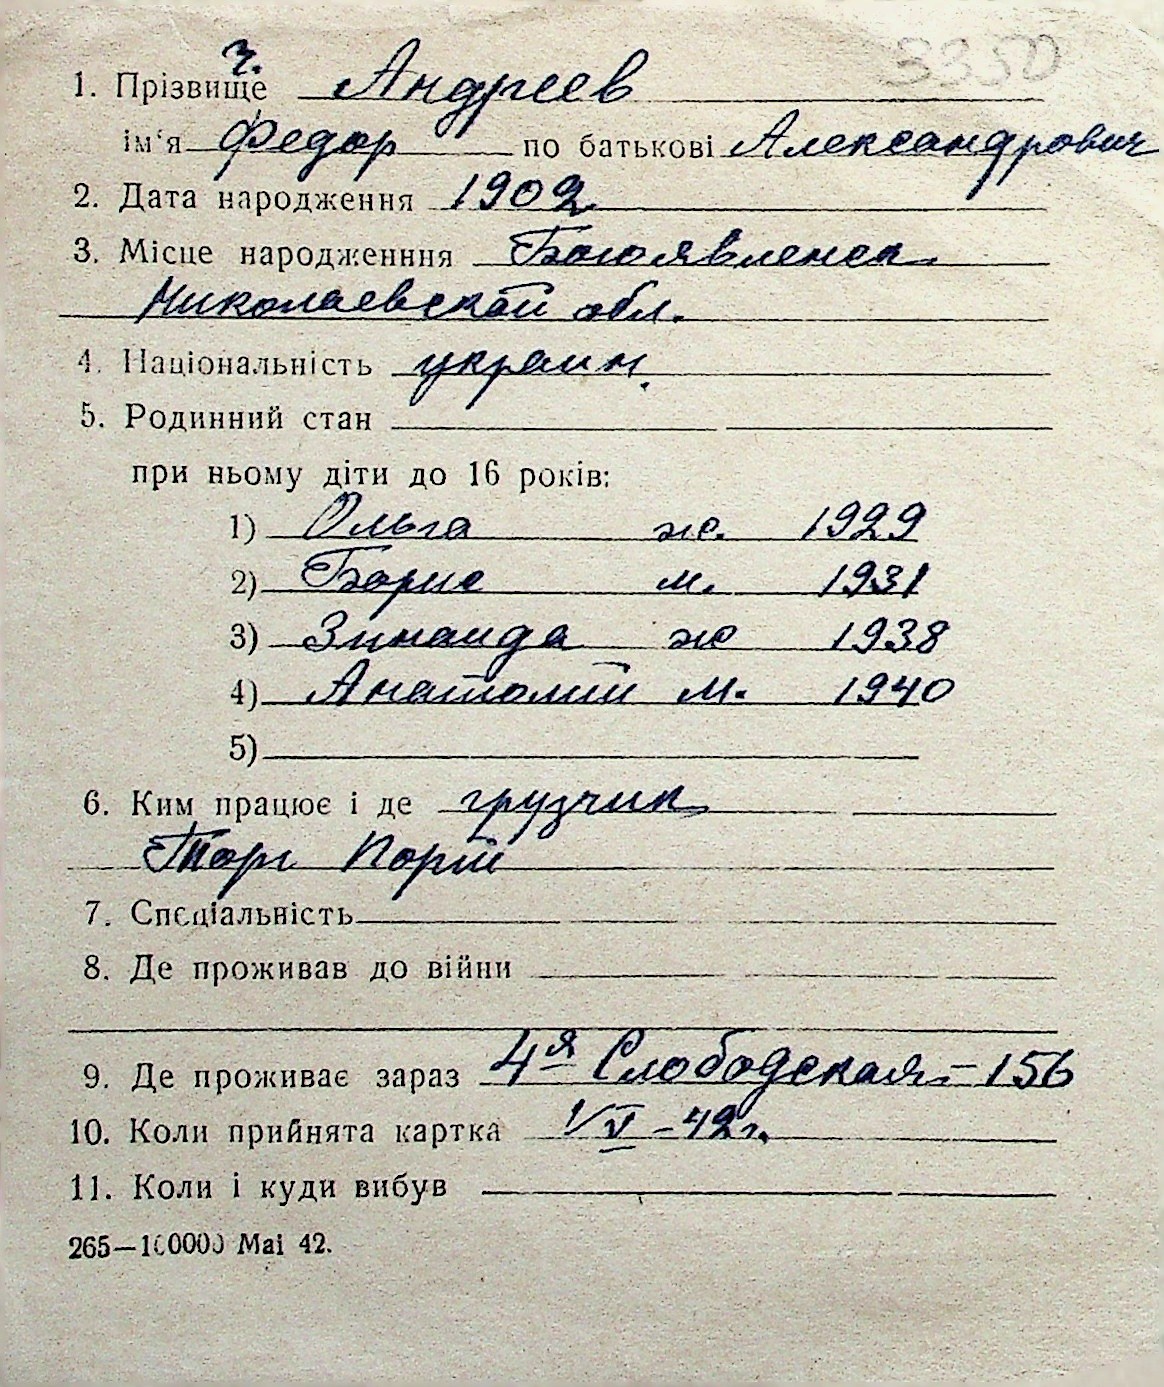 3350
ч.
1. Прізвище Андреев
ім'я Федор по батькові Александрович
2. Дата народження 1902
3. Місце народженння Богоявленск
Николаевской обл.
4. Національність украин.
5. Родинний стан
при ньому діти до 16 років:
1) Ольга ж. 1929
2) Борис м. 1931
3) Зинаида ж 1938
4) Анатолий м. 1940
5)
6. Ким працює і де грузчик
Торг Порт
7. Спеціальність
8. Де проживав до війни
9. Де проживає зараз 4я Слободская - 156
10. Коли прийнята картка 1/V - 42 г.
11. Коли і куди вибув
265—100000 Маі 42.